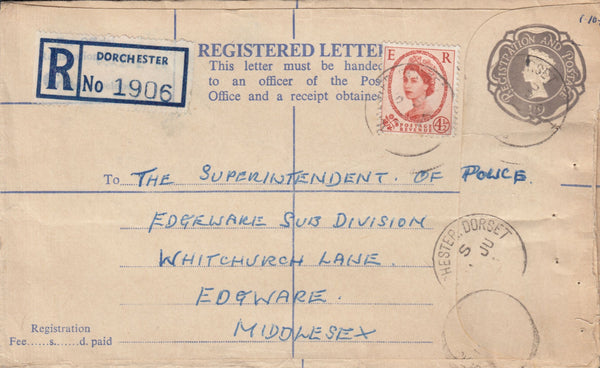 DORCHESTER
R No 1906
REGISTERED LETTER
This letter must be handed
to an officer of the Post
Office and a receipt obtained
E R
POSTAGE
REVENUE
4½D
REGISTRATION AND POSTAGE
1/9
To THE SUPERINTENDENT. OF POLICE.
EDGEWARE SUB DIVISION
WHITCHURCH LANE.
EDGWARE.
MIDDLESEX
CHESTER. DORSET
JU
Registration
Fee......s.......d. paid